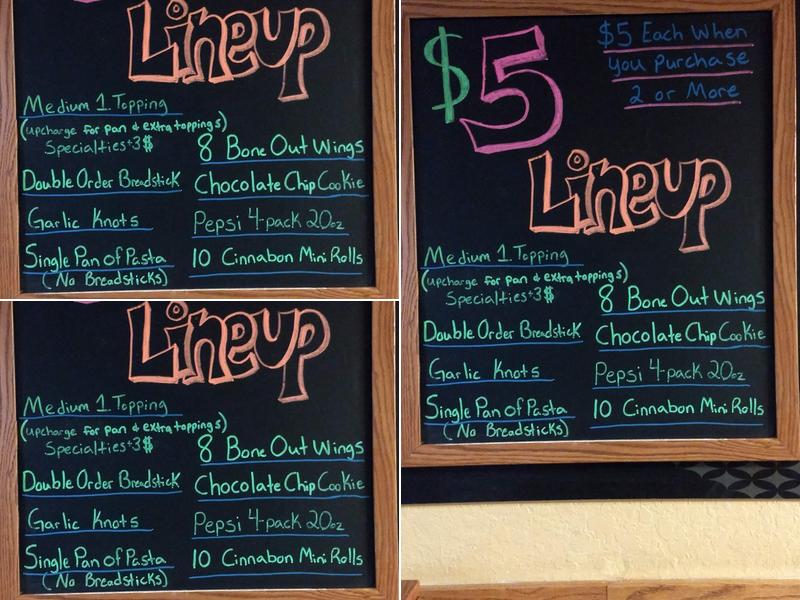 Lineup
Medium 1 Topping
(upcharge for pan & extra toppings)
Specialties+3$
Double Order Breadstick
Garlic Knots
Single Pan of Pasta
(No Breadsticks)
8 Bone Out Wings
Chocolate Chip Cookie
Pepsi 4-pack 20oz
10 Cinnabon Mini Rolls
Lineup
Medium 1 Topping
(upcharge for pan & extra toppings)
Specialties+3$
Double Order Breadstick
Garlic Knots
Single Pan of Pasta
(No Breadsticks)
8 Bone Out Wings
Chocolate Chip Cookie
Pepsi 4-pack 20oz
10 Cinnabon Mini Rolls
$5
$5 Each When
you purchase
2 or More
Lineup
Medium 1 Topping
(upcharge for pan & extra toppings)
Specialties+3$
Double Order Breadstick
Garlic Knots
Single Pan of Pasta
(No Breadsticks)
8 Bone Out Wings
Chocolate Chip Cookie
Pepsi 4-pack 20oz
10 Cinnabon Mini Rolls